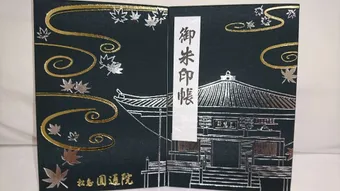 御朱印帳
松島 圓通院